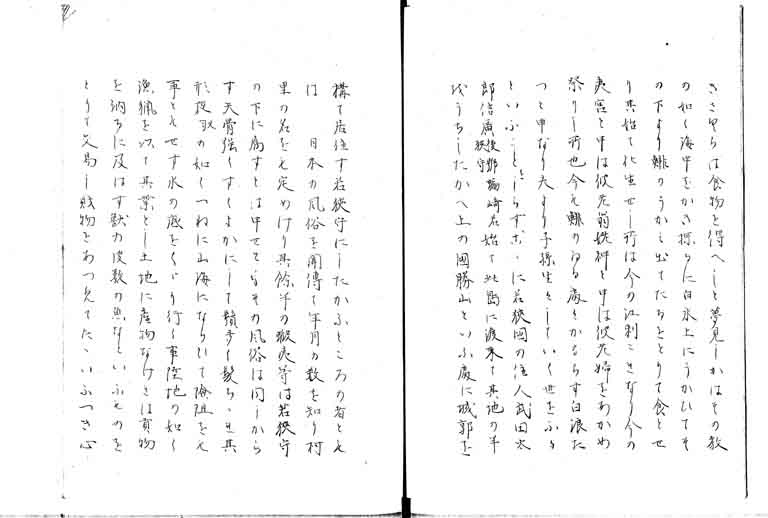 さゝやらは食物を得へしと夢見しかはその教
の如く海中をかき探らに白水上にうかいてそ
の下より鯡のうかみ出てたちをとりて食とせ
り其始て化生せし所は今の江刺こきなり今の
夷宮と申は彼老翁姥神と申は彼老婦をあかめ
祭りし所也今も鯡の寄る處とかならす白浪た
つと申なり夫より子孫生々していく世をふる
といふことしらす に若狭國の住人武田太
郎信廣後野蠣崎若狭守始て此島に渡来て其地の半
或うちしたかへ上の國勝山といふ處に城郭を
構て居住す若狭守にしたかふところの者とも
は 日本の風俗を聞傳て年月の数を知り村
里の名をも定めけり其餘千の蝦夷等は若狭守
の下に属すとは申せともその風俗は同しから
す天骨強くすくよかにして鬚多く髪ちゝれ其
形夜叉の如くつねに山海にならいて險阻をも
事ともせす水の底をくゝり行く事陸地の如く
漁猟を以て其業とし土地に産物なけれは貢物
を納るに及はす獣の皮数の魚なといふものを
とりて交易し財物をあつめてたゝいふつき心